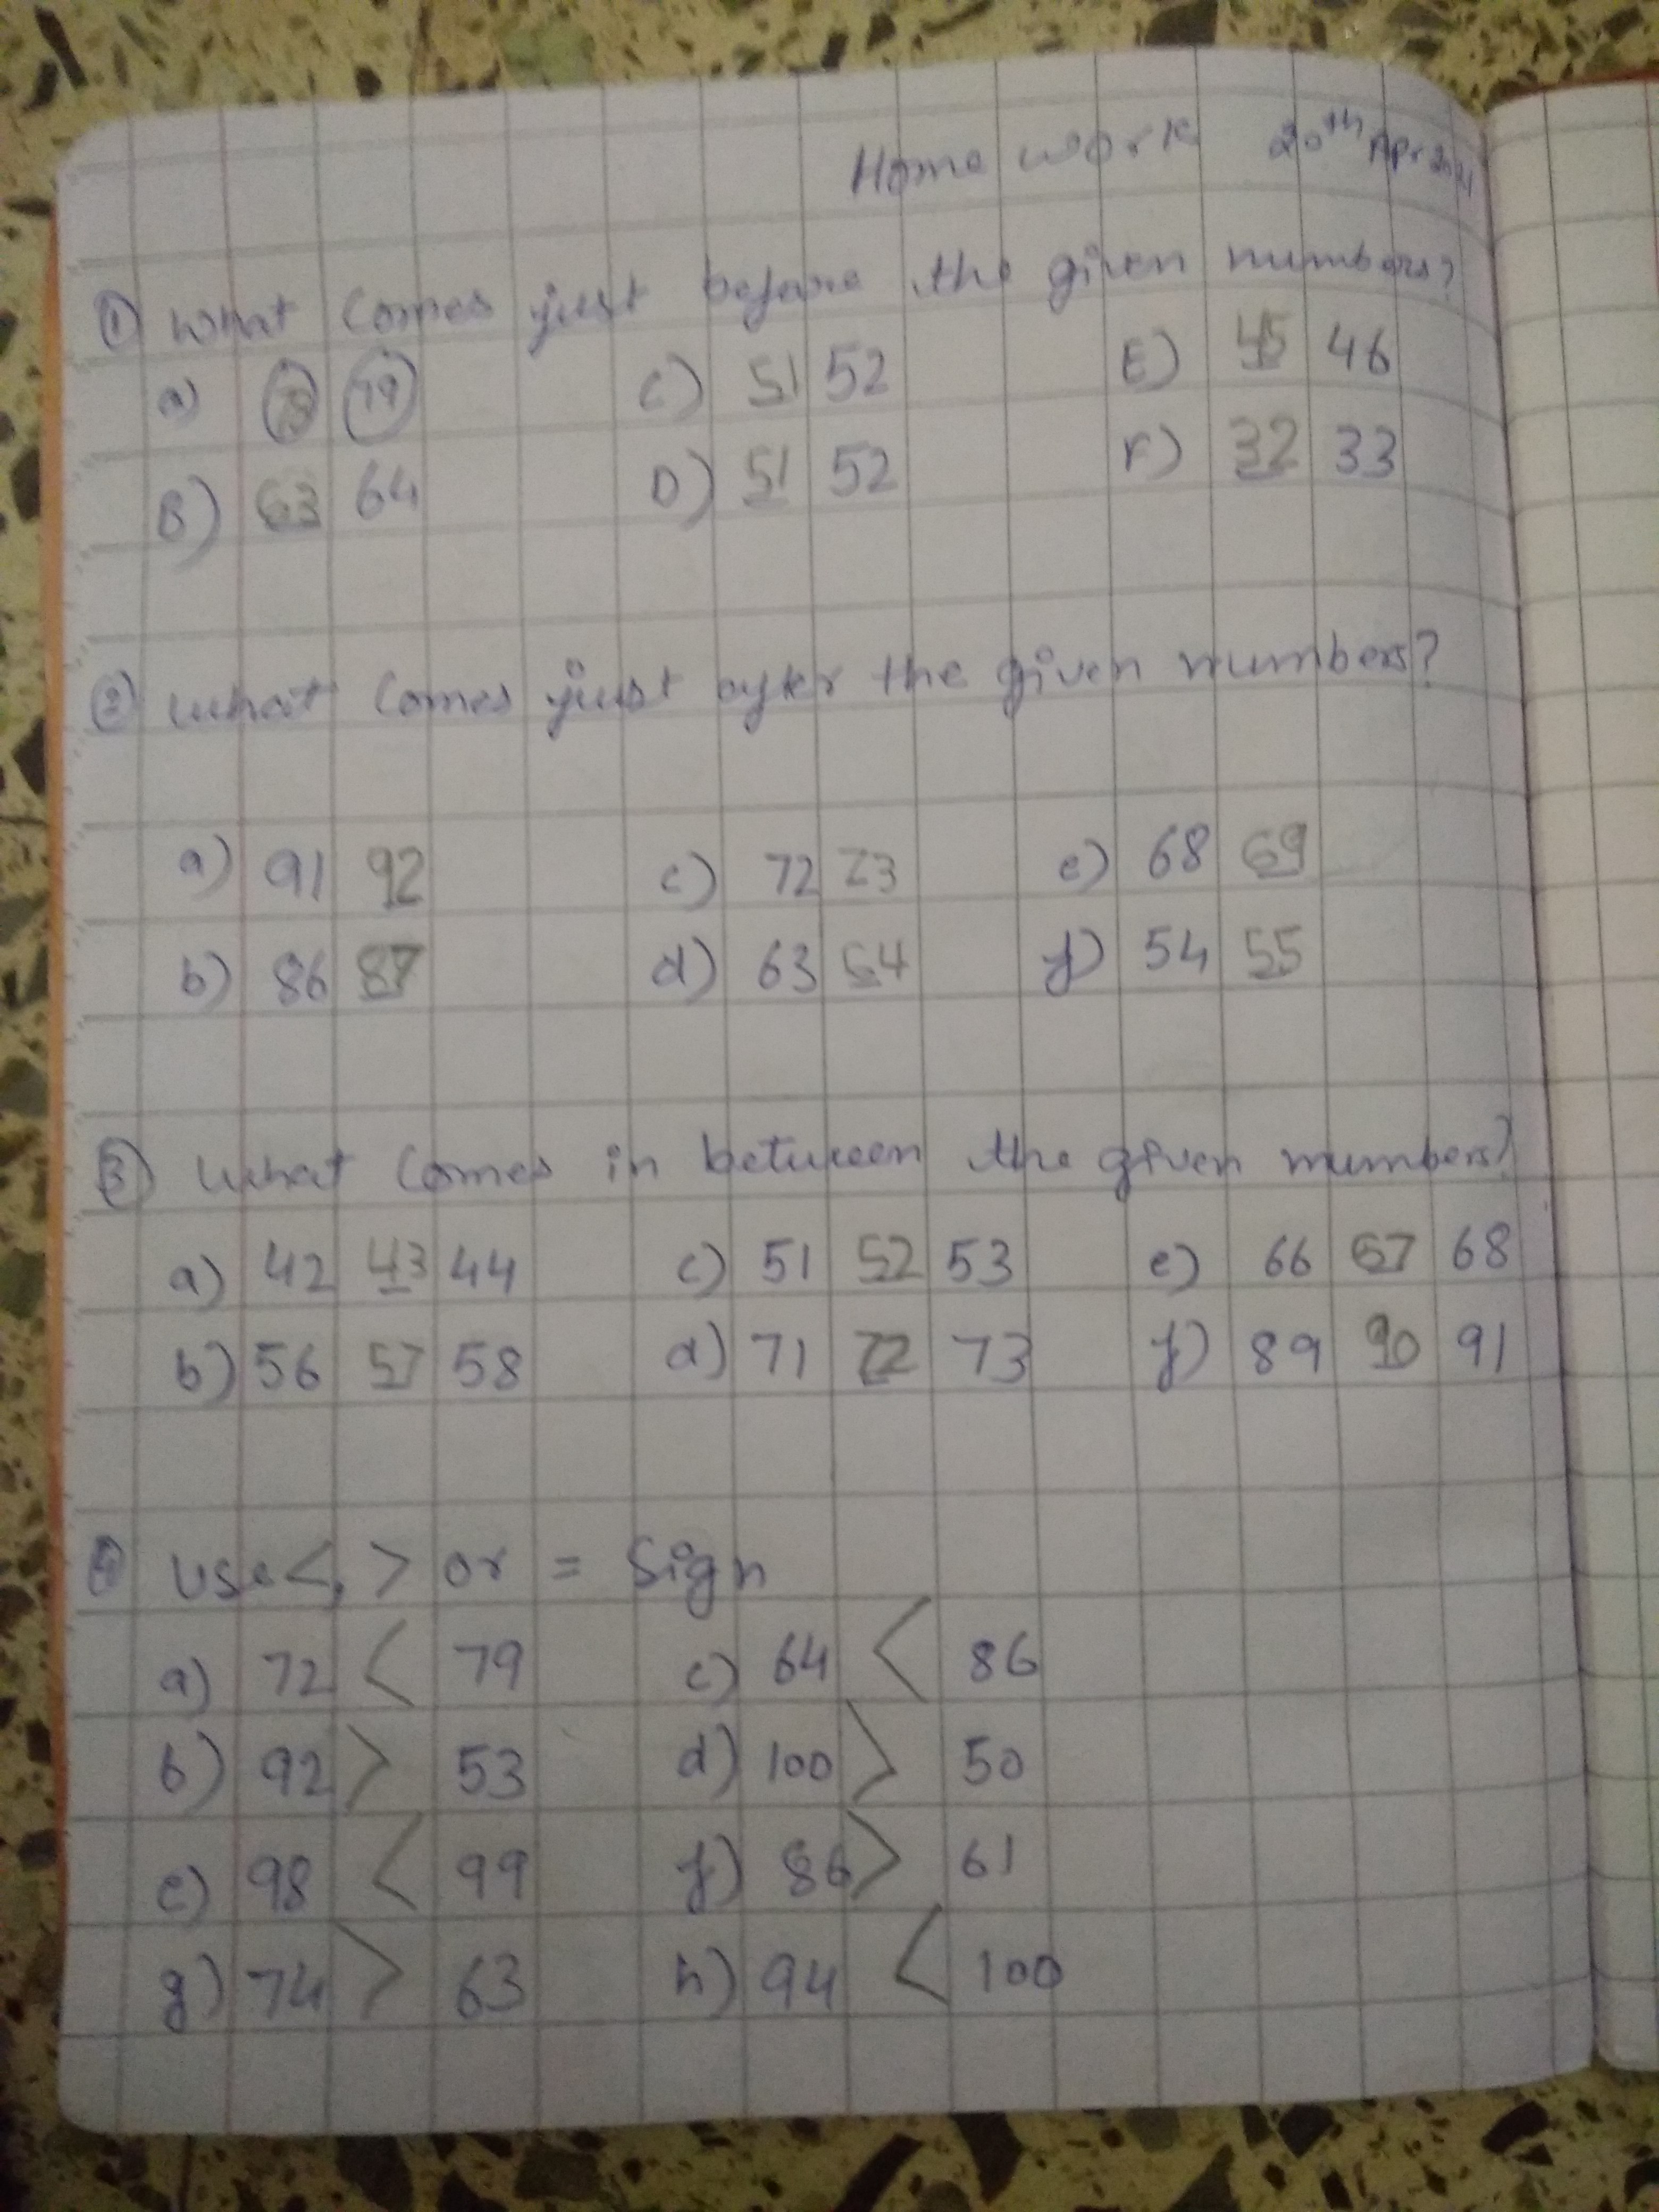 Home work 20th Apr 2021
① What comes just before the given numbers?
a) 78 79 C) 51 52 E) 45 46
B) 63 64 D) 51 52 F) 32 33
② What comes just after the given numbers?
a) 91 92 c) 72 73 e) 68 69
b) 86 87 d) 63 64 f) 54 55
③ What comes in between the given numbers?
a) 42 43 44 c) 51 52 53 e) 66 67 68
b) 56 57 58 d) 71 72 73 f) 89 90 91
④ Use <, > or = Sign
a) 72 < 79 c) 64 < 86
b) 92 > 53 d) 100 > 50
e) 98 < 99 f) 86 > 61
g) 74 > 63 h) 94 < 100